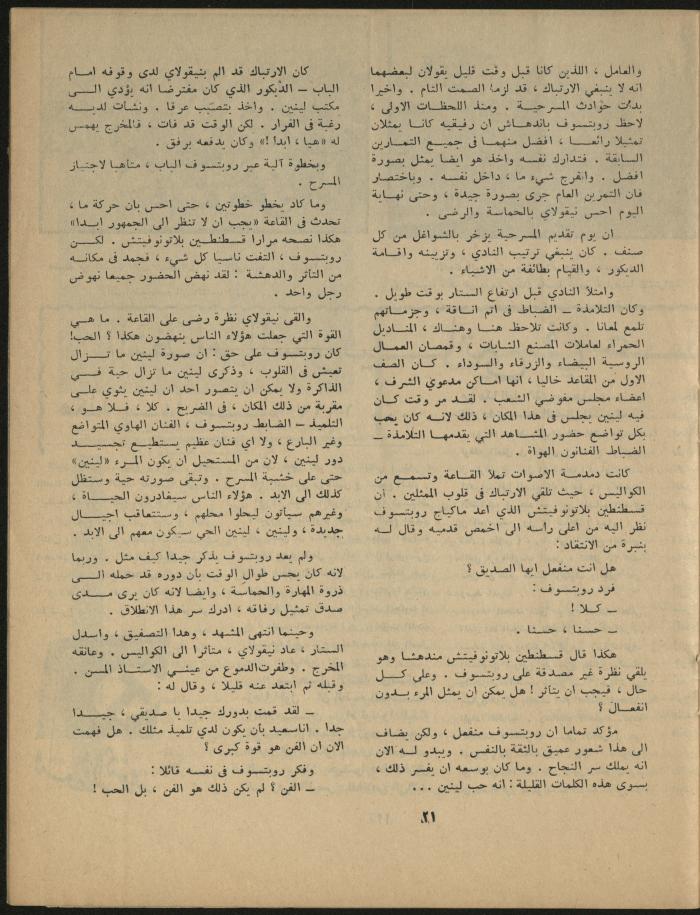 والعامل ، اللذين كانا قبل وقت قليل يقولان لبعضهما
انه لا ينبغي الارتباك ، قد لزما الصمت التام . واخيرا
بدأت حوادث المسرحية . ومنذ اللحظات الاولى ،
لاحظ روبتسوف باندهاش ان رفيقيه كانا يمثلان
تمثيلا رائعا ، افضل منهما في جميع التمارين
السابقة . فتدارك نفسه واخذ هو ايضا يمثل بصورة
افضل . وانفرج شيء ما ، داخل نفسه . وباختصار
فان التمرين العام جرى بصورة جيدة ، وحتى نهاية
اليوم احس نيقولاي بالحماسة والرضى .
ان يوم تقديم المسرحية يزخر بالشواغل من كل
صنف . كان ينبغي ترتيب النادي ، وتزيينه واقامة
الديكور ، والقيام بطائفة من الاشياء .
وامتلأ النادي قبل ارتفاع الستار بوقت طويل .
وكان التلامذة ــ الضباط في اتم اناقة ، وجزماتهم
تلمع لمعانا . وكانت تلاحظ هنا وهناك ، المناديل
الحمراء لعاملات المصنع الشابات ، وقمصان العمال
الروسية البيضاء والزرقاء والسوداء . كان الصف
الاول من المقاعد خاليا ، انها اماكن مدعوي الشرف ،
اعضاء مجلس مفوضي الشعب . لقد مر وقت كان
فيه لينين يجلس في هذا المكان ، ذلك لانه كان يحب
بكل تواضع حضور المشاهد التي يقدمها التلامذة ــ
الضباط الفنانون الهواة .
كانت دمدمة الاصوات تملأ القاعة وتسمع من
الكواليس ، حيث تلقي الارتباك في قلوب الممثلين . ان
قسطنطين بلاتونوفيتش الذي اعد ماكياج روبتسوف
نظر اليه من اعلى رأسه الى اخمص قدميه وقال له
بنبرة من الانتقاد :
هل انت منفعل ايها الصديق ؟
فرد روبتسوف :
ــ كلا !
ــ حسنا ، حسنا .
هكذا قال قسطنطين بلاتونوفيتش مندهشا وهو
يلقي نظرة غير مصدقة على روبتسوف . وعلى كل
حال ، فيجب ان يتأثر ! هل يمكن ان يمثل المرء بدون
انفعال ؟
مؤكد تماما ان روبتسوف منفعل ، ولكن يضاف
الى هذا شعور عميق بالثقة بالنفس . ويبدو له الان
انه يملك سر النجاح . وما كان بوسعه ان يفسر ذلك ،
بسوى هذه الكلمات القليلة : انه حب لينين ...
كان الارتباك قد الم بنيقولاي لدى وقوفه امام
الباب ــ الديكور الذي كان مفترضا انه يؤدي الى
مكتب لينين . واخذ يتصبب عرقا . ونشأت لديه
رغبة في الفرار . لكن الوقت قد فات ، فالمخرج يهمس
له «هيا ، ابدأ !» وكان يدفعه برفق .
وبخطوة آلية عبر روبتسوف الباب ، متأهبا لاجتياز
المسرح .
وما كاد يخطو خطوتين ، حتى احس بان حركة ما ،
تحدث في القاعة «يجب ان لا تنظر الى الجمهور ابدا»
هكذا نصحه مرارا قسطنطين بلاتونوفيتش . لكن
روبتسوف ، التفت ناسيا كل شيء ، فجمد في مكانه
من التأثر والدهشة : لقد نهض الحضور جميعا نهوض
رجل واحد .
والقى نيقولاي نظرة رضى على القاعة . ما هي
القوة التي جعلت هؤلاء الناس ينهضون هكذا ؟ الحب!
كان روبتسوف على حق : ان صورة لينين ما تزال
تعيش في القلوب ، وذكرى لينين ما تزال حية في
الذاكرة ولا يمكن ان يتصور احد ان لينين يثوي على
مقربة من ذلك المكان ، في الضريح . كلا ، فلا هو ،
التلميذ ــ الضابط روبتسوف ، الفنان الهاوي المتواضع
وغير البارع ، ولا اي فنان عظيم يستطيع تجسيد
دور لينين ، لان من المستحيل ان يكون المرء «لينين»
حتى على خشبة المسرح . وتبقى صورته حية وستظل
كذلك الى الابد . هؤلاء الناس سيغادرون الحياة ،
وغيرهم سيأتون ليحلوا محلهم ، وستتعاقب اجيال
جديدة ، ولينين ، لينين الحي سيكون معهم الى الابد .
ولم يعد روبتسوف يذكر جيدا كيف مثل . وربما
لانه كان يحس طوال الوقت بان دوره قد حمله الى
ذروة المهارة والحماسة ، وايضا لانه كان يرى مدى
صدق تمثيل رفاقه ، ادرك سر هذا الانطلاق .
وحينما انتهى المشهد ، وهدأ التصفيق ، واسدل
الستار ، عاد نيقولاي ، متأثرا الى الكواليس . وعانقه
المخرج . وطفرت الدموع من عيني الاستاذ المسن .
وقبله ثم ابتعد عنه قليلا ، وقال له :
ــ لقد قمت بدورك جيدا يا صديقي ، جيدا
جدا . انا سعيد بان يكون لدي تلميذ مثلك . هل فهمت
الان ان الفن هو قوة كبرى ؟
وفكر روبتسوف في نفسه قائلا :
ــ الفن ؟ لم يكن ذلك هو الفن ، بل الحب !
٢١